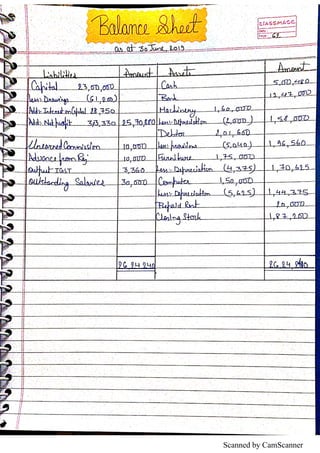 Balance Sheet
CLASSMATE
as at 30 June, 2019
Liabilities Amount Assets Amount
Capital 23,00,000 Cash
Less: Drawings (61,200) Bank
Add: Interest on Capital 28,750 Machinery 1,60,000
Add: Net profit 25,70,880 Less: Depreciation (2,000) 1,58,000
Debtor 2,01,600
Unearned Commission 10,000 Less: provisions (5,040) 1,96,560
Advance from Raj 10,000 Furniture 1,75,000
Output IGST 3,360 Less: Depreciation (4,375) 1,70,625
Outstanding Salaries 30,000 Computer 1,50,000
Less: Depreciation (5,625) 1,44,375
Prepaid Rent 20,000
Closing Stock 1,87,200
26,24,240 26,24,240
Scanned by CamScanner